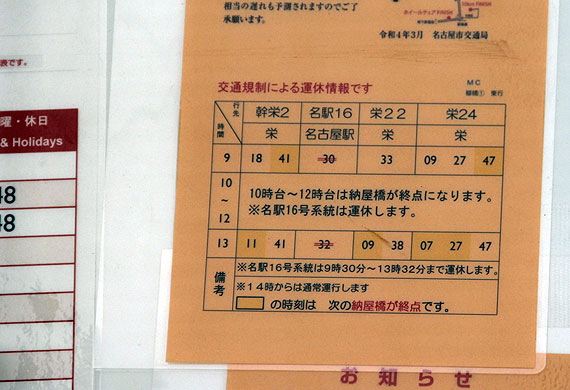 相当の遅れも予測されますのでご
了承願います。
令和4年3月 名古屋市交通局
表です。
曜・休日
& Holidays
48
48
交通規制による運休情報です
MC
柳橋① 東行
行先 時間 幹栄2 名駅16 栄22 栄24
栄 名古屋駅 栄 栄
9 18 41 30 33 09 27 47
10~12 10時台~12時台は納屋橋が終点になります。
※名駅16号系統は運休します。
13 11 41 32 09 38 07 27 47
備考 ※名駅16号系統は9時30分~13時32分まで運休します。
※14時からは通常運行します
の時刻は 次の納屋橋が終点です。
お知らせ